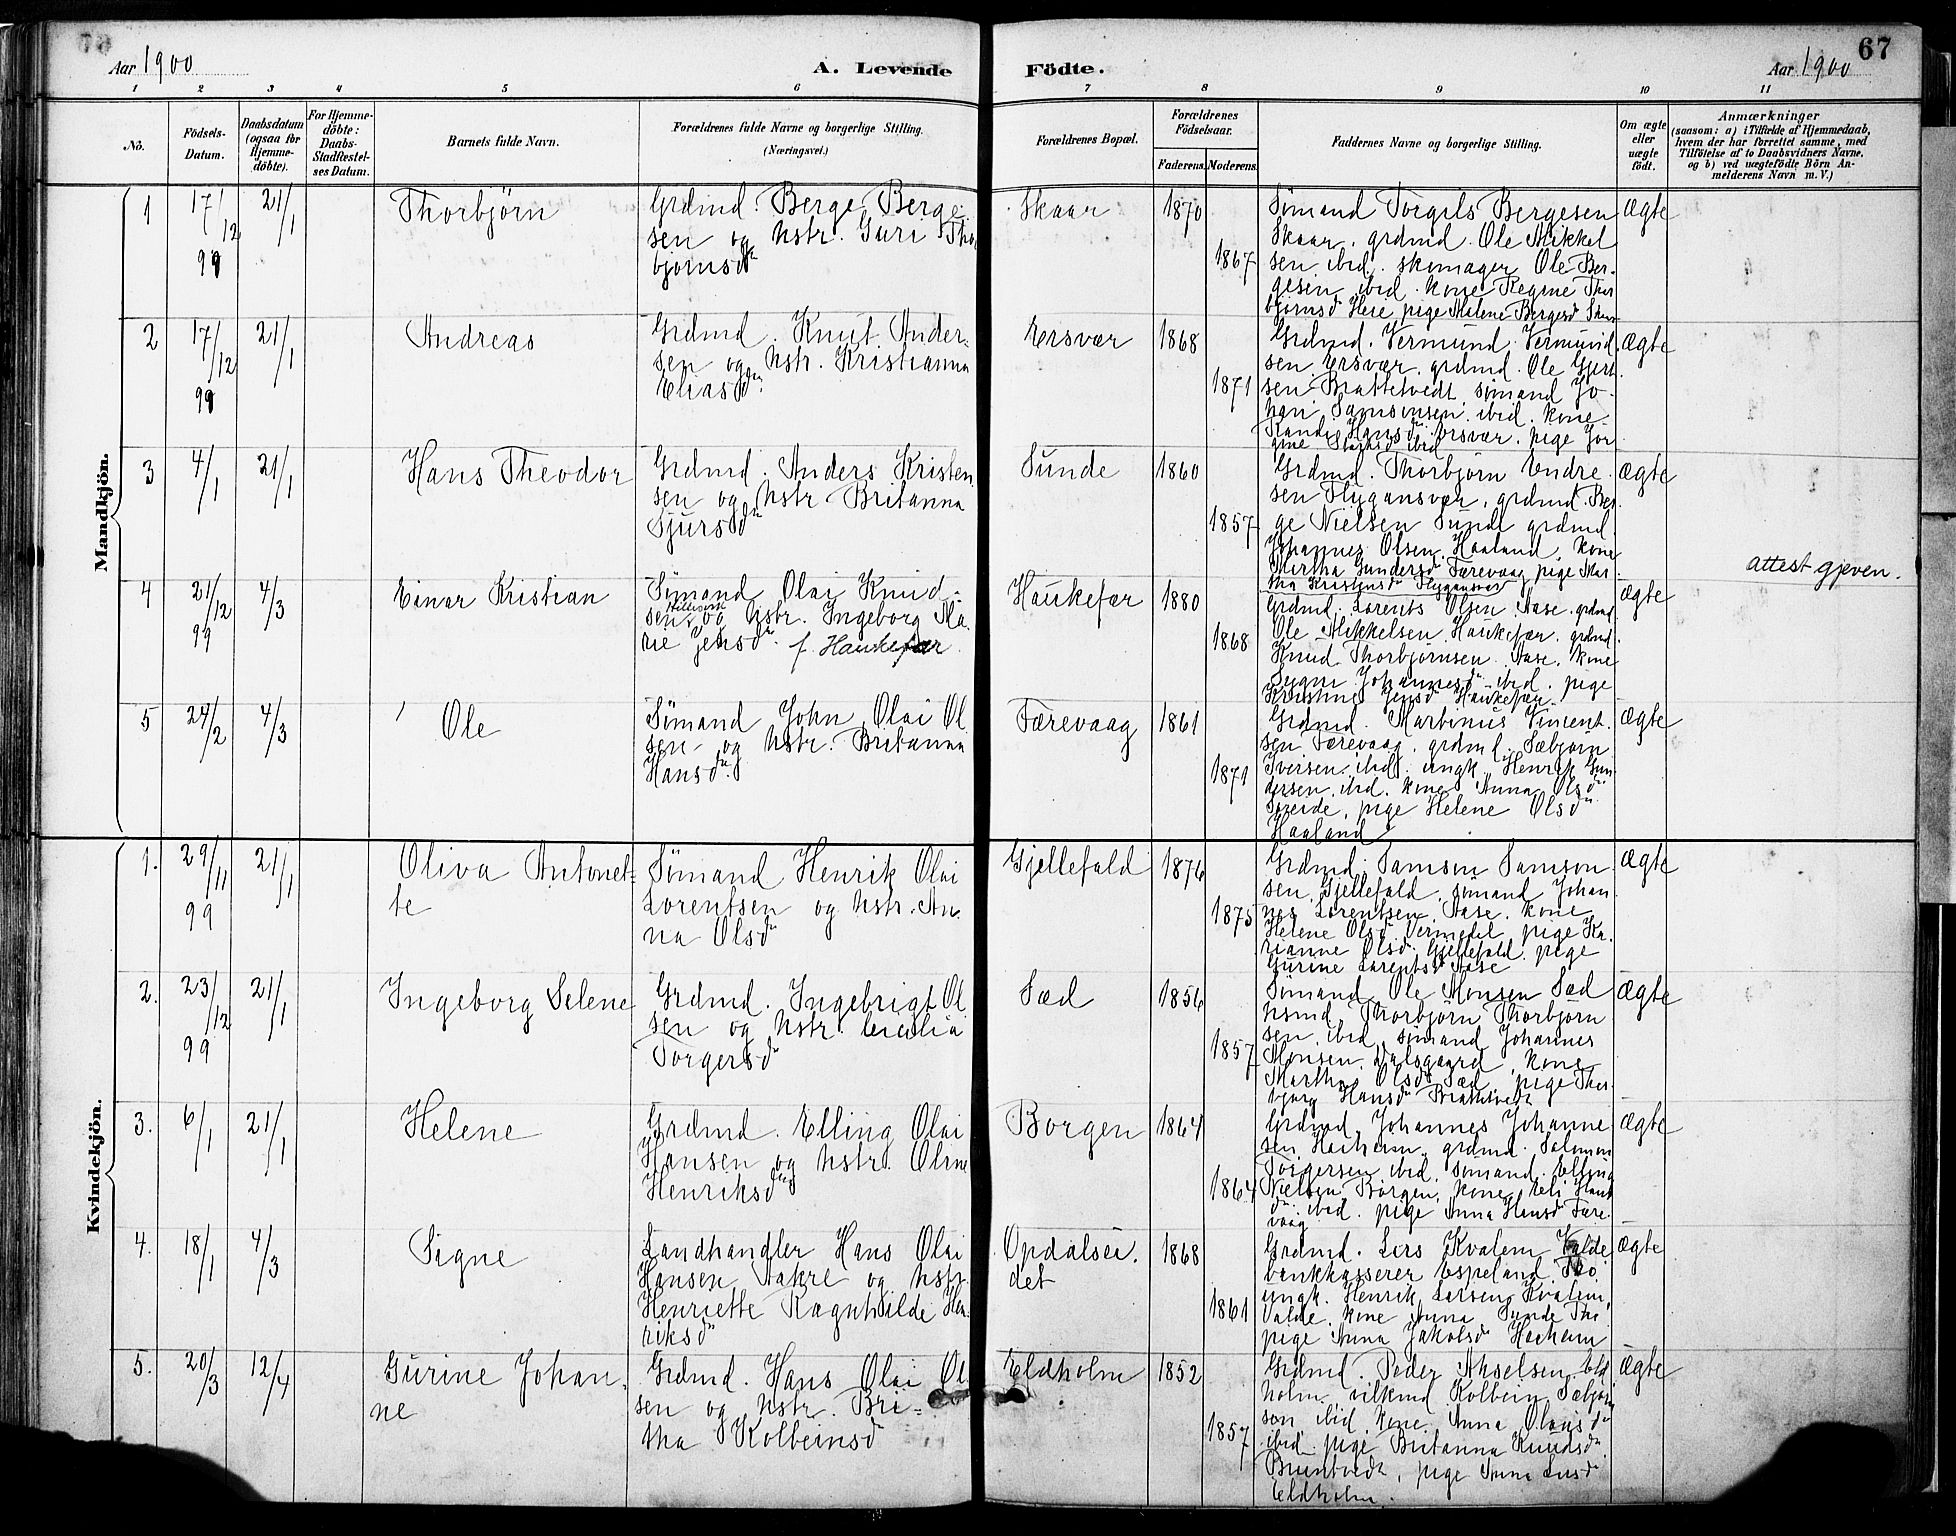 67
Aar 1900
A. Levende Födte.
Aar 1900
1 2 3 4 5 6 7 8 9 10 11
No.
Födsels-
Datum.
Daabsdatum
(ogsaa for
Hjemme-
döbte).
For Hjemme-
döbte:
Daabs-
Stadfæstel-
ses Datum.
Barnets fulde Navn.
Forældrenes fulde Navne og borgerlige Stilling.
(Næringsvei.)
Forældrenes Bopæl.
Forældrenes
Födselsaar.
Faderens. Moderens.
Faddernes Navne og borgerlige Stilling.
Om ægte
eller
uægte
födt.
Anmærkninger
(saasom: a) i Tilfælde af Hjemmedaab,
hvem der har forrettet samme, med
Tilföielse af to Daabsvidners Navne,
og b) ved uægtefödte Börn An-
melderens Navn m. V.)
Mandkjön.
1
17/12
99
21/1
Thorbjörn
Grdmd. Berge Berge-
sen og hstr. Guri Tho
bjørnsdr
Skaar
1870
1867
Sømand Torgils Bergesen
Skaar, grdmd. Ole Mikkel
sen ibid. skomager Ole Ber-
gesen ibid. kone Regine Thor
bjørnsdr Heie pige Malene Bergesdr Skaar
Ægte
2
17/12
99
21/1
Andreas
Grdmd. Knut Ander-
sen og hstr. Kristianna
Eliasdr
Ersvær
1868
1871
Grdmd. Vermund Vermund
sen Ersvær, grdmd. Ole Gjert
sen Brattetvedt, sømand Jo-
han Samsonsen ibid. kone
Randi Hansdr Ersvær, pige Jor
gine ibid
Ægte
3
4/1
21/1
Hans Theodor
Grdmd. Anders Kristen
sen og hstr Britanna
Sjursdr
Sunde
1860
1857
Grdmd. Thorbjørn Endre-
sen Flygansvær, grdmd. Ber
ge Nielsen Sunde grdmd.
Johannes Olsen Haaland, kone
Mirtha Gundersdr Færevaag pige Mar
tha Kristensdr Flygansvær
Ægte
4
21/12
99
4/3
Einar Kristian
Sømand Olai Knud-
sen og hstr. Ingeborg Ma-
rie Jensdr f. Haukefær
Haukefær
1880
1868
Grdmd. Lorents Olsen Aase, grdmd.
Ole Mikkelsen Haukefær, grdmd.
Knud Thorbjørnsen Aase, kone
Sygni Johannesdr ibid. pige
Kristine Jensdr Haukefær
Ægte
attest gjeven.
5
24/2
4/3
Ole
Sømand John Olai Ol
sen og hstr. Britanna
Hansdr
Færevaag
1861
1871
Grdmd. Martinus Vincent
sen Færevaag, grdmd. Sæbjørn
Iversen ibid. ungk. Henrik Gun
dersen ibid. kone Anna Olsdr
Søreide, pige Helene Olsdr
Haaland
Ægte
Kvindekjön.
1.
29/11
99
21/1
Oliva Antonet-
te
Sømand Henrik Olai
Lorentsen og hstr. An
na Olsdr
Gjellefald
1876
1875
Grdmd. Samson Samson
sen Gjellefald, sømand Johan
nes Lorentsen Aase, kone
Helene Olsdr Vermedal, pige Ka
rianne Olsdr Gjellefald, pige
Gurine Lorentsdr Aase
Ægte
2.
23/12
99
21/1
Ingeborg Selene
Grdmd. Ingebrigt Ol
sen og hstr. Cecilia
Torgersdr
Sæd
1856
1857
Sømand Ole Monsen Sæd
husmd. Thorbjørn Thorbjørn
sen ibid, sømand Johannes
Monsen Valsgaard, kone
Martha Olsdr Sæd, pige Thor
bjørg Hansdr Brattetvedt
Ægte
3.
6/1
21/1
Helene
Grdmd. Elling Olai
Hansen og hstr. Oline
Henriksdr
Borgen
1864
1864
Grdmd. Johannes Johanne
sen Hoeheim, grdmd. Salomon
Torgersen ibid. sømand Elling
Nielsen Borgen, kone Eli Hans
dr ibid. pige Anna Hansdr Fære
vaag
Ægte
4.
18/1
4/3
Signe
Landhandler Hans Olai
Hansen Aakre og hstr.
Henriette Ragnhilde Hen
riksdr
Opdalsei-
det
1868
1861
Grdmd. Lars Kvalem Valde
bankkasserer Espeland Tho
ungk. Henrik Larsen Kvalem,
Valde, kone Anna Sunde Tho
pige Anna Jakobsdr Hoeheim
Ægte
5.
20/3
12/4
Gurine Johan-
ne
Grdmd. Hans Olai Ol
sen og hstr. Bri-
tha Kolbeinsdr
Eldholm
1852
1857
Grdmd. Peder Akselsen Eld
holm, vilkmd Kolbein Sæbjørn
sen ibid. kone Anna Olaisdr
ibid. pige Britanna Knudsdr
Bruntvedt, pige Anna Larsdr
Eldholm.
Ægte